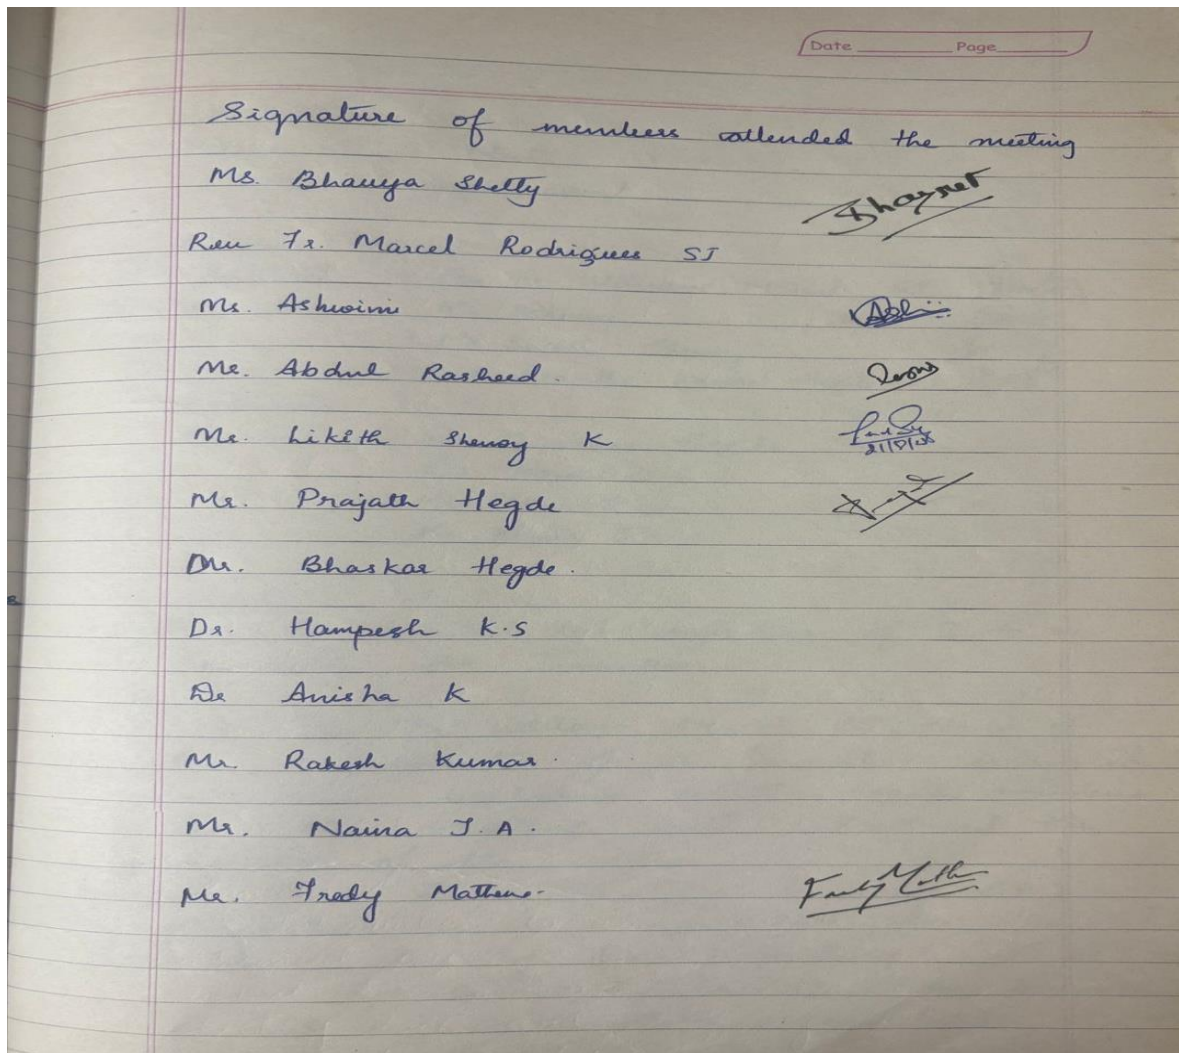 Date Page
Signature of members attended the meeting
Ms. Bhavya Shetty
Rev Fr. Marcel Rodrigues SJ
Ms. Ashwini
Mr. Abdul Rasheed.
Mr. Likith Shenoy K
Mr. Prajath Hegde
Dr. Bhaskar Hegde.
Dr. Hampesh K.S
Dr Anisha K
Mr. Rakesh Kumar.
Mr. Naina J.A.
Mr. Fredy Mathew.